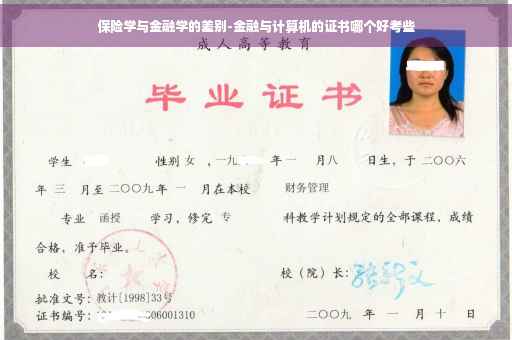 保险学与金融学的差别-金融与计算机的证书哪个好考些
成人高等教育
毕业证书
学生 性别 女 ，一九 年 一 月 八 日生，于 二〇〇六
年 三 月至 二〇〇九 年 一 月在本校 财务管理
专业 函授 学习，修完 专 科教学计划规定的全部课程，成绩
合格，准予毕业。
校 名： 校（院）长：
批准文号：教计[1998]33号
证书编号： 06001310 二〇〇九 年 一 月 十 日